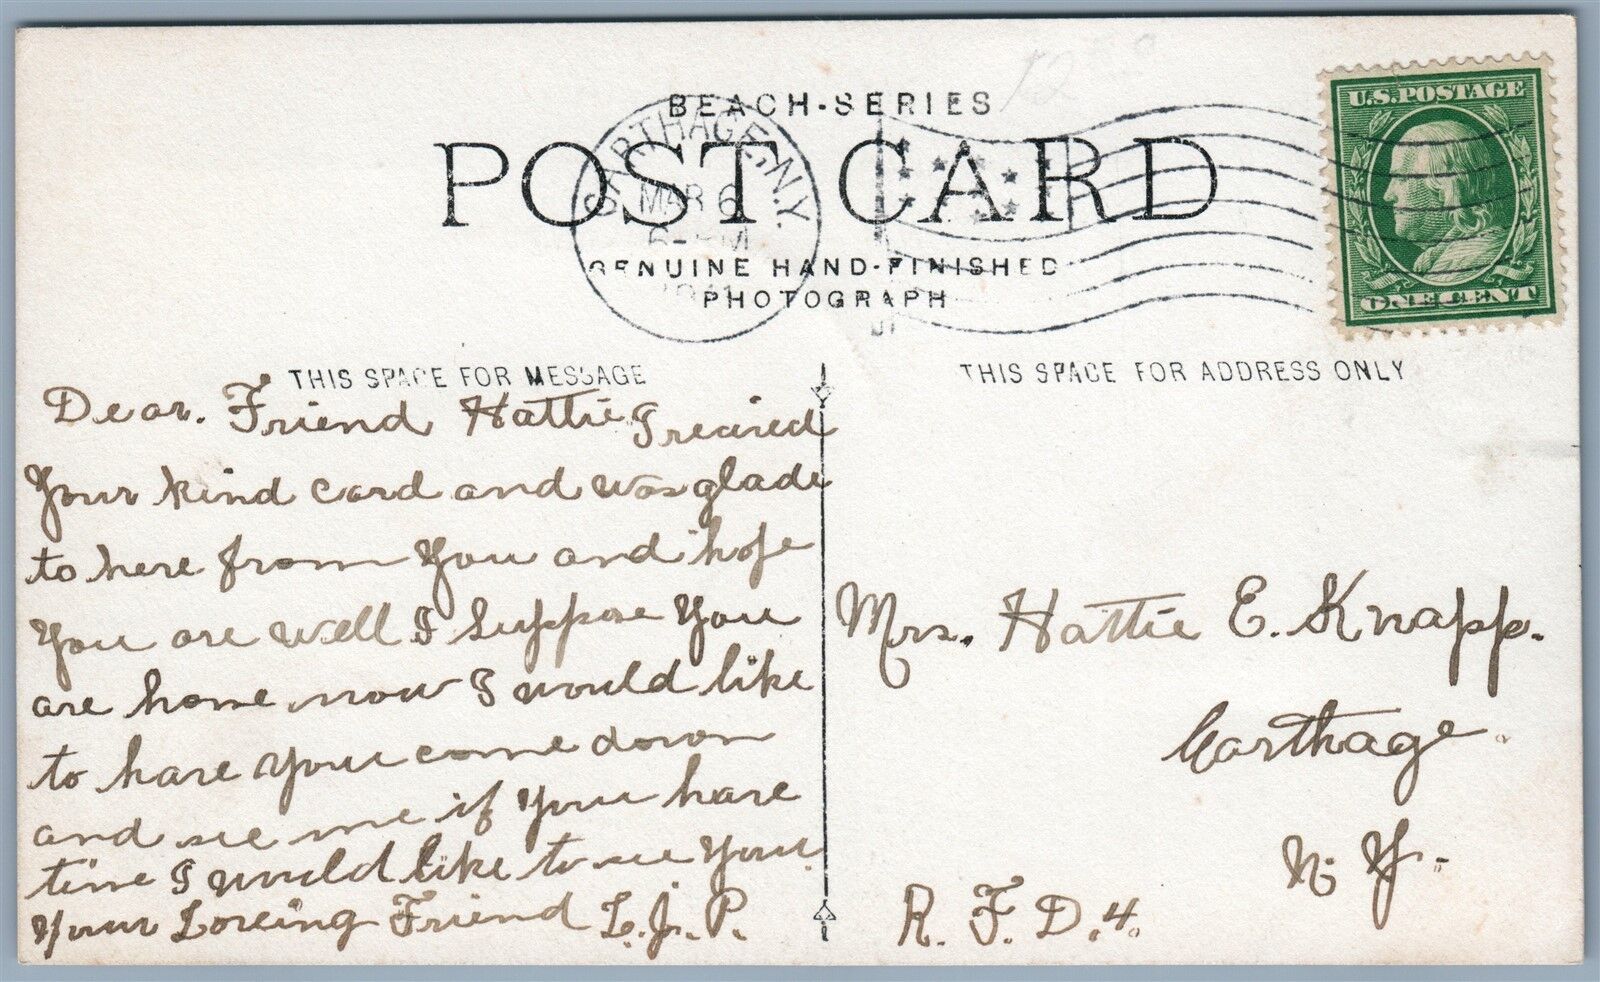 BEACH-SERIES
POST CARD
GENUINE HAND-FINISHED
PHOTOGRAPH
CARTHAGE, N.Y.
MAR 6
1911
U.S. POSTAGE
ONE CENT
THIS SPACE FOR MESSAGE
Dear. Friend Hattie I recived
Your kind card and was glade
to here from You and hope
You are well I suppose You
are home now I would like
to have You come down
and see me if You have
time I would like to see You
Your Loveing Friend L.J.P.
THIS SPACE FOR ADDRESS ONLY
Mrs. Hattie E. Knapp.
Carthage.
N. Y.
R. F. D. 4.